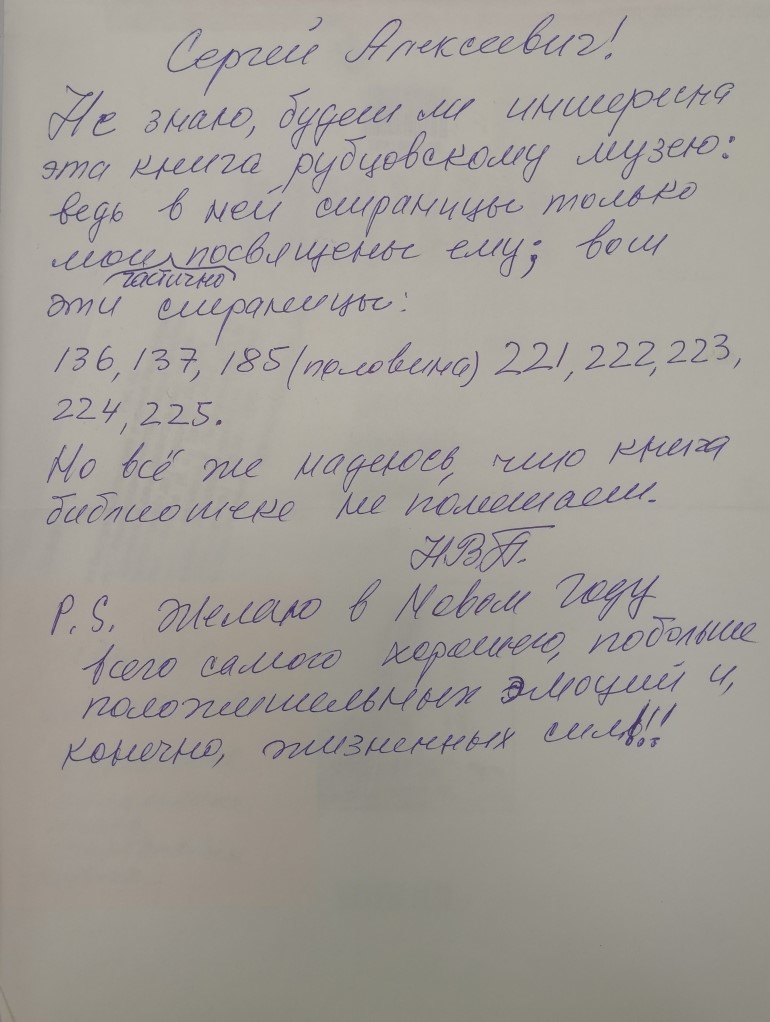 Сергей Алексеевич!
Не знаю, будет ли интересна
эта книга рубцовскому музею:
ведь в ней страницы только
мои посвящены ему; вот
частично
эти страницы:
136, 137, 185 (половина) 221, 222, 223,
224, 225.
Но всё же надеюсь, что книга
библиотеке не помешает.
Н.В.П.
P.S. Желаю в Новом Году
всего самого хорошего, побольше
положительных эмоций и,
конечно, жизненных сил!!!